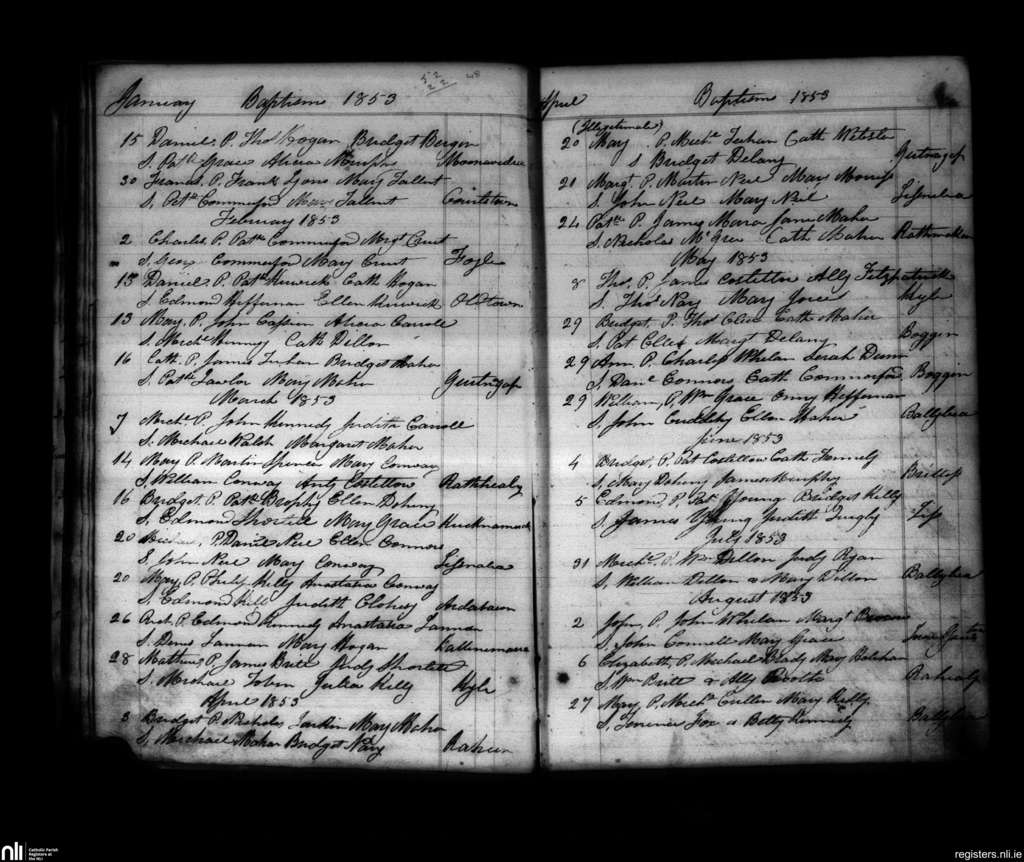 January Baptism 1853
15 Daniel P. Thos Hogan Bridget Bergin
S. Patk Grace Alicia Murphy
30 Francis P. Frank Lyons Mary Tallent
S. Patk Commerford Mary Tallent Courtstown
February 1853
2 Charles P. Patk Commerford Margt Curt
S. Geor Commerford Mary Curt Foyle
13 Daniel P. Patk Cath Hogan
S. Edmond Heffernan Ellen Oldtown
13 Mary P. John Alicia Carroll
S. Michl Cath Dillon
16 Cath. P. James Bridget Maher
S. Patk Lawlor Mary Maher Gurtnagap
March 1853
7 Michl P. John Kennedy Judith Carroll
S. Michael Walsh Margaret Maher
14 Mary P. Martin Spencer Mary Conway
S. William Conway Anty Costellow Rathhealy
16 Bridget P. Patk Brophy Ellen Doheny
S. Edmond Shortill Mary Grace
20 P. Daniel Neil Ellen Connors
S. John Neil Mary Conway Lisnalea
20 Mary P. Philip Kelly Anastatia Conway
S. Edmond Judith Clohesy
26 P. Edmond Kennedy Anastatia Lannan
S. Denis Lannan Mary Hogan
28 Mathew P. James Britt Judy Shortill
S. Michael Tobin Julia Kelly Hyle
April 1853
3 Bridget P. Nicholas Larkin Mary Maher
S. Michael Maher Bridget Nary
April Baptism 1853
(Illegitimate)
20 Mary P. Michl Cath
S Bridget Delany Gurtnagap
21 Margt P. Martin Neil Mary Morris
S. John Neil Mary Neil Lisnalea
24 Patk P. James Mara Jane Maher
S. Nicholas Cath Maher
May 1853
8 Thos P. James Costellow Ally Fitzpatrick
S. Thos Nary Mary Joice Hyle
29 Bridget P. Thos Cath Maher
S. Pat Margt Delany Boggan
29 Ann P. Charles Whelan Sarah Dunn
S. Danl Connors Cath Commerford Boggan
29 William P. Wm Grace Heffernan
S. John Cuddihy Ellen Maher
June 1853
4 Bridget P. Pat Costellow Cath
S. Mary Doheny James Murphy
5 Edmond P. Pat Young Bridget Kelly
S. James Young Judith Quigly
July 1853
31 Michl P. Wm Dillon Judy Ryan
S. William Dillon & Mary Dillon
August 1853
2 John P. John Whelan Margt
S. John Connell Mary Grace
6 Elizabeth P. Michael Brady Mary
S. Wm Britt & Ally Booth
27 Mary P. Michl Cullen Mary Reilly
S. Fox & Betty Kennedy
nli
Catholic Parish
Registers at
the NLI
registers.nli.ie